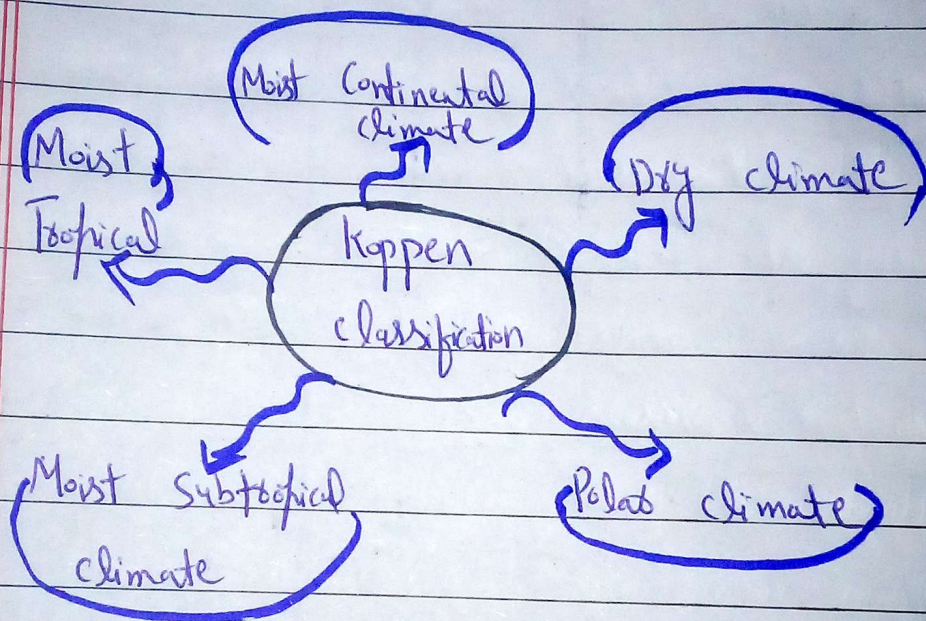 Moist Continental
climate
Moist
Tropical
Dry climate
Koppen
classification
Moist Subtropical
climate
Polar climate